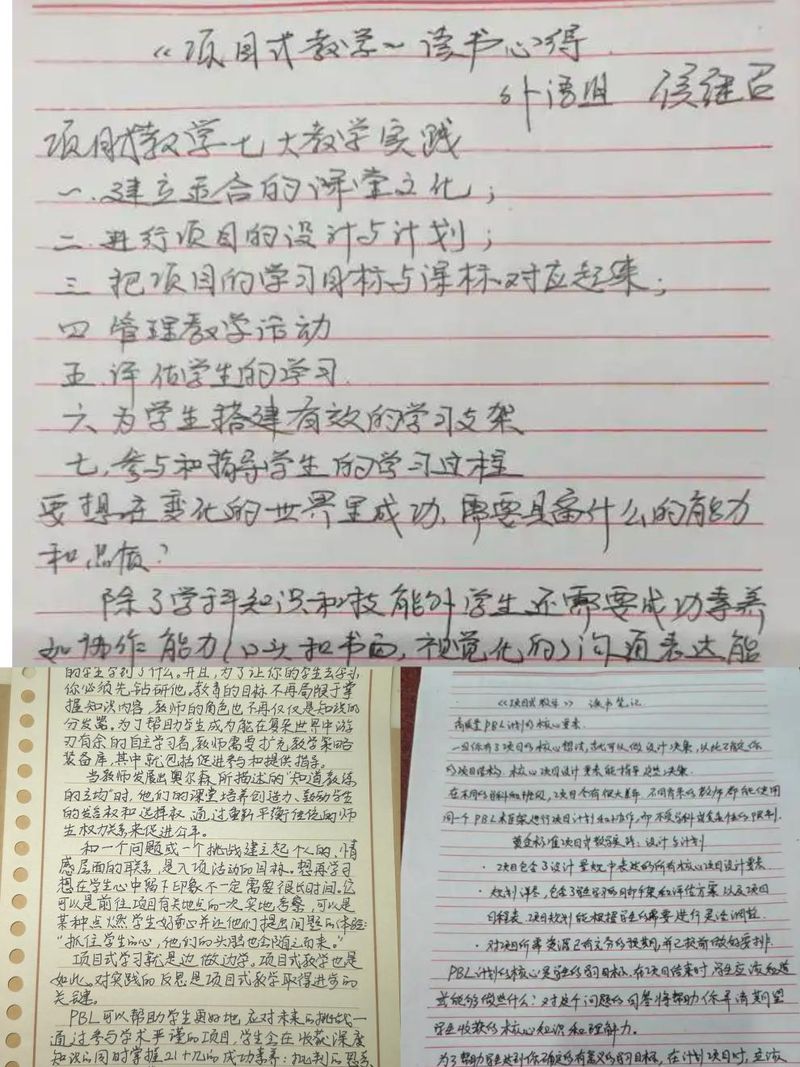 《项目式教学》读书心得
外语组 侯继召
项目式教学七大教学实践
一.建立适合的课堂文化；
二.进行项目的设计与计划；
三.把项目的学习目标与课标对应起来；
四 管理教学活动
五.评估学生的学习.
六.为学生搭建有效的学习支架
七.参与和指导学生的学习过程
要想在变化的世界里成功,需要具备什么的能力
和品质?
除了学科知识和技能外学生还需要成功素养
如协作能力(口头和书面,视觉化的)沟通表达能
的学生学到了什么。并且,为了让你的学生去学习,
你必须先钻研他。教育的目标不再局限于掌
握知识内容,教师的角色也不再仅仅是知识的
分发器。为了帮助学生成为能在复杂世界中游
刃有余的自主学习者,教师需要扩充教学策略
装备库,其中就包括促进参与和提供指导。
当教师发展出奥尔森所描述的"知道教练
的主场"时,他们的课堂培养创造力、鼓动学生
的发言权和选择权,通过重新平衡传统的师
生权力关系来促进公平。
和一个问题或一个挑战建立起个人的、情
感层面的联系,是入项活动的目标。想再学习
想在学生心中留下印象不一定需要很长时间。它
可以是前往项目有关地点的一次实地考察,可以是
某种点燃学生好奇心并让他们提出问题的体验:
"抓住学生的心,他们的头脑也会随之而来。"
项目式学习就是边做边学。项目式教学也是
如此。对实践的反思是项目式教学取得进步的
关键。
PBL可以帮助学生更好地应对未来的挑战—
通过参与学术严谨的项目,学生会在收获深度
知识的同时掌握21世纪的成功素养:批判的思考
《项目式教学》 读书笔记
高质量PBL计划的核心要素.
一旦你有了项目的核心想法,就可以做设计决策,从而确定你
的项目结构.核心项目设计要素能指导这些决策.
在不同的学科和班级,项目会有很大差异.不同背景的教师都能使用
同一个PBL来框架进行项目计划和协作,而不受学科或其他条件的限制.
黄金标准项目式教学实践:设计与计划
· 项目包含了设计量规中表述的所有核心项目设计要素.
· 规划详尽,包含了学生学习的脚手架和评估方案以及项目
日程表.项目规划能根据学生的需要进行灵活调整.
· 对项目所需资源已有充分的预期,并已提前做好安排.
PBL计划的核心是学生的学习目标.在项目结束时学生应该知道
或能够做些什么?对这个问题的回答将帮助你弄清期望
学生收获的核心知识和理解力.
为了帮助学生达到你确定的有意义的学习目标,在计划项目时,应该